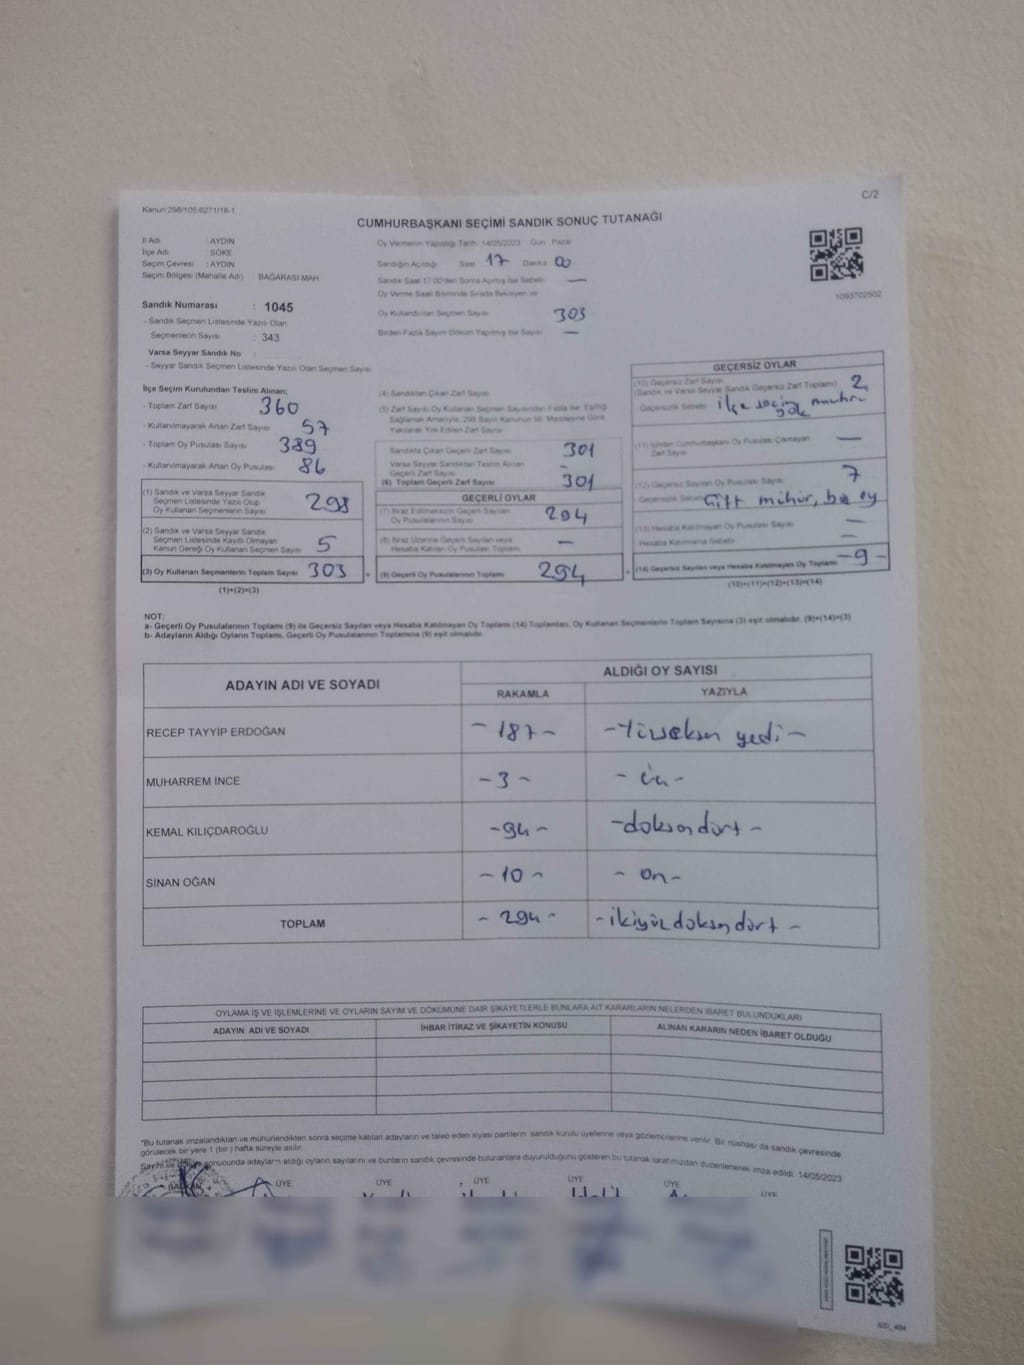 C/2
Kanun:298/105;6271/18-1
CUMHURBAŞKANI SEÇİMİ SANDIK SONUÇ TUTANAĞI
İl Adı AYDIN
İlçe Adı SÖKE
Seçim Çevresi : AYDIN
Seçim Bölgesi (Mahalle Adı) BAĞARASI MAH
Sandık Numarası : 1045
- Sandık Seçmen Listesinde Yazılı Olan
Seçmenlerin Sayısı : 343
Varsa Seyyar Sandık No :
- Seyyar Sandık Seçmen Listesinde Yazılı Olan Seçmen Sayısı
Oy Vermenin Yapıldığı Tarih: 14/05/2023 Gün Pazar
Sandığın Açıldığı Saat 17 Dakika 00
Sandık Saat 17:00'den Sonra Açılmış İse Sebebi —
Oy Verme Saati Bitiminde Sırada Bekleyen ve
Oy Kullandırılan Seçmen Sayısı 303
Birden Fazla Sayım Döküm Yapılmış İse Sayısı —
1093702502
İlçe Seçim Kurulundan Teslim Alınan;
- Toplam Zarf Sayısı 360
- Kullanılmayarak Artan Zarf Sayısı 57
- Toplam Oy Pusulası Sayısı 389
- Kullanılmayarak Artan Oy Pusulası 86
(1) Sandık ve Varsa Seyyar Sandık
Seçmen Listesinde Yazılı Olup
Oy Kullanan Seçmenlerin Sayısı 298
(2) Sandık ve Varsa Seyyar Sandık
Seçmen Listesinde Kaydı Olmayan
Kanun Gereği Oy Kullanan Seçmen Sayısı 5
(3) Oy Kullanan Seçmenlerin Toplam Sayısı 303
(1)+(2)=(3)
(4) Sandıktan Çıkan Zarf Sayısı
(5) Zarf Sayısı Oy Kullanan Seçmen Sayısından Fazla İse, Eşitliği
Sağlamak Amacıyla, 298 Sayılı Kanunun 98. Maddesine Göre
Yakılarak Yok Edilen Zarf Sayısı
Sandıkta Çıkan Geçerli Zarf Sayısı 301
Varsa Seyyar Sandıktan Teslim Alınan
Geçerli Zarf Sayısı -
(6) Toplam Geçerli Zarf Sayısı 301
GEÇERLİ OYLAR
(7) İtiraz Edilmeksizin Geçerli Sayılan
Oy Pusulalarının Sayısı 294
(8) İtiraz Üzerine Geçerli Sayılan veya
Hesaba Katılan Oy Pusulası Toplamı —
(9) Geçerli Oy Pusulalarının Toplamı 294
GEÇERSİZ OYLAR
(10) Geçersiz Zarf Sayısı
(Sandık ve Varsa Seyyar Sandık Geçersiz Zarf Toplamı) 2
Geçersizlik Sebebi ilçe seçim mührü
yok
(11) İçinden Cumhurbaşkanı Oy Pusulası Çıkmayan
Zarf Sayısı —
(12) Geçersiz Sayılan Oy Pusulası Sayısı 7
Geçersizlik Sebebi Çift mühür, boş oy
(13) Hesaba Katılmayan Oy Pusulası Sayısı —
Hesaba Katılmama Sebebi —
(14) Geçersiz Sayılan veya Hesaba Katılmayan Oy Toplamı -9-
(10)+(11)+(12)+(13)=(14)
NOT:
a- Geçerli Oy Pusulalarının Toplamı (9) ile Geçersiz Sayılan veya Hesaba Katılmayan Oy Toplamı (14) Toplamları, Oy Kullanan Seçmenlerin Toplam Sayısına (3) eşit olmalıdır. (9)+(14)=(3)
b- Adayların Aldığı Oyların Toplamı, Geçerli Oy Pusulalarının Toplamına (9) eşit olmalıdır.
ADAYIN ADI VE SOYADI ALDIĞI OY SAYISI
RAKAMLA YAZIYLA
RECEP TAYYİP ERDOĞAN -187- -Yüzseksen yedi-
MUHARREM İNCE -3- -üç-
KEMAL KILIÇDAROĞLU -94- -doksandört-
SİNAN OĞAN -10- -on-
TOPLAM -294- -ikiyüzdoksandört-
OYLAMA İŞ VE İŞLEMLERİNE VE OYLARIN SAYIM VE DÖKÜMÜNE DAİR ŞİKAYETLERLE BUNLARA AİT KARARLARIN NELERDEN İBARET BULUNDUKLARI
ADAYIN ADI VE SOYADI İHBAR İTİRAZ VE ŞİKAYETİN KONUSU ALINAN KARARIN NEDEN İBARET OLDUĞU
*Bu tutanak imzalandıktan ve mühürlendikten sonra seçime katılan adayların ve talep eden siyasi partilerin sandık kurulu üyelerine veya gözlemcilerine verilir. Bir nüshası da sandık çevresinde
görülecek bir yere 1 (bir) hafta süreyle asılır.
Sayım ve döküm sonucunda adayların aldığı oyların sayılarını ve bunların sandık çevresinde bulunanlara duyurulduğunu gösteren bu tutanak tarafımızdan düzenlenerek imza edildi. 14/05/2023
BAŞKAN ÜYE ÜYE ÜYE ÜYE ÜYE ÜYE